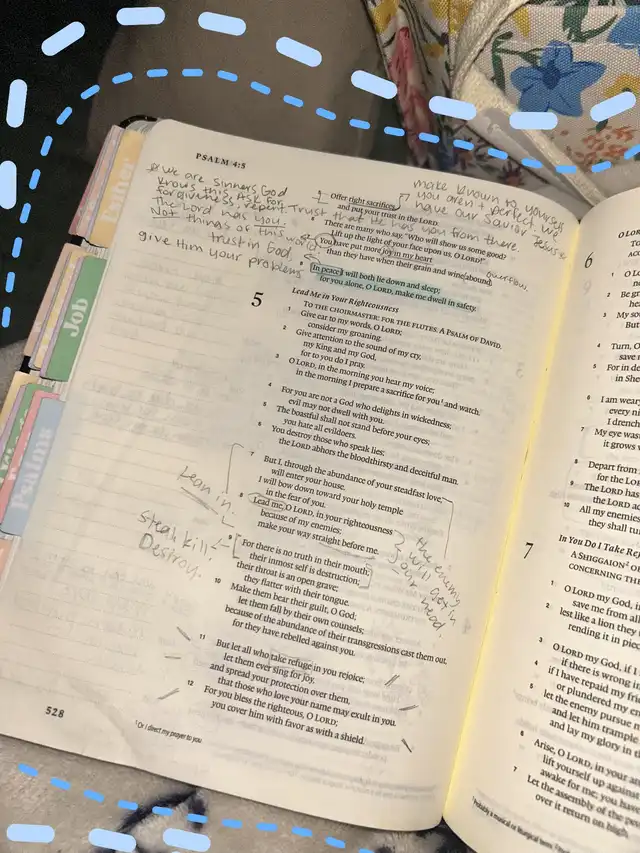 PSALM 4:5
we are sinners God
knows this. Ask for
forgiveness, repent. Trust that He has you from there.
The Lord has you.
Not things of this world
trust in God.
give Him your problems
make known to yourself
you aren't perfect. we
have our savior Jesus
5 Offer right sacrifices,
and put your trust in the LORD.
6 There are many who say, "Who will show us some good?
Lift up the light of your face upon us, O LORD!"
7 You have put more joy in my heart
than they have when their grain and wine abound.
overflow.
8 In peace I will both lie down and sleep;
for you alone, O LORD, make me dwell in safety.
Lead Me in Your Righteousness
5 TO THE CHOIRMASTER: FOR THE FLUTES. A PSALM OF DAVID.
1 Give ear to my words, O LORD;
consider my groaning.
2 Give attention to the sound of my cry,
my King and my God,
for to you do I pray.
3 O LORD, in the morning you hear my voice;
in the morning I prepare a sacrifice for you¹ and watch.
4 For you are not a God who delights in wickedness;
evil may not dwell with you.
5 The boastful shall not stand before your eyes;
you hate all evildoers.
6 You destroy those who speak lies;
the LORD abhors the bloodthirsty and deceitful man.
7 But I, through the abundance of your steadfast love,
will enter your house.
I will bow down toward your holy temple
in the fear of you.
8 Lead me, O LORD, in your righteousness
because of my enemies;
make your way straight before me.
Lean in.
9 For there is no truth in their mouth;
their inmost self is destruction;
their throat is an open grave;
they flatter with their tongue.
steal kill.
Destroy.
the enemy
will get in
our head.
10 Make them bear their guilt, O God;
let them fall by their own counsels;
because of the abundance of their transgressions cast them out,
for they have rebelled against you.
11 But let all who take refuge in you rejoice;
let them ever sing for joy,
and spread your protection over them,
that those who love your name may exult in you.
12 For you bless the righteous, O LORD;
you cover him with favor as with a shield.
528
¹ Or I direct my prayer to you
Esther
Job
Psalms
6
O LOR
1 O LO
2 Be gr
3 My so
But
4 Turn, O
save
5 For in de
in She
6 I am wear
every ni
I drench
7 My eye was
it grows
8 Depart from
for the LOR
9 The LORD has
the LORD ac
10 All my enemies
they shall tur
In You Do I Take Re
7 A SHIGGAION² OF
CONCERNING THE
1 O LORD my God, i
save me from all
2 lest like a lion they
rending it in piec
3 O LORD my God, if I
if there is wrong in
4 if I have repaid my frie
or plundered my en
5 let the enemy pursue m
and let him trample
and lay my glory in t
6 Arise, O LORD, in your an
lift yourself up against
awake for me; you hav
7 Let the assembly of the peo
over it return on high.
² Probably a musical or liturgical term